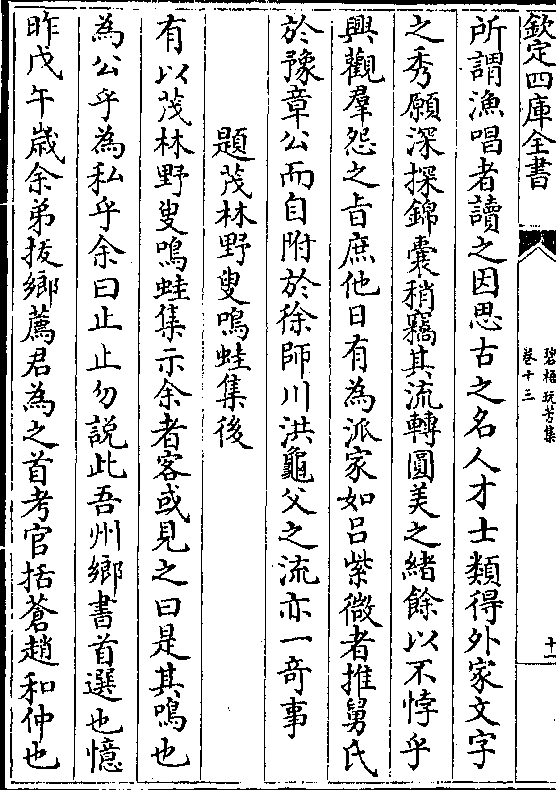 欽定四庫全書
碧梧玩芳集
卷十三
十一
所謂漁唱者讀之因思古之名人才士類得外家文字
之秀願深探錦囊稍竊其流轉圓美之緒餘以不悖乎
興觀羣怨之旨庶他日有為派家如呂紫微者推舅氏
於豫章公而自附於徐師川洪龜父之流亦一奇事
題茂林野叟鳴蛙集後
有以茂林野叟鳴蛙集示余者客或見之曰是其鳴也
為公乎為私乎余曰止止勿說此吾州鄉書首選也憶
昨戊午歲余弟扳鄉薦君為之首考官括蒼趙和仲也